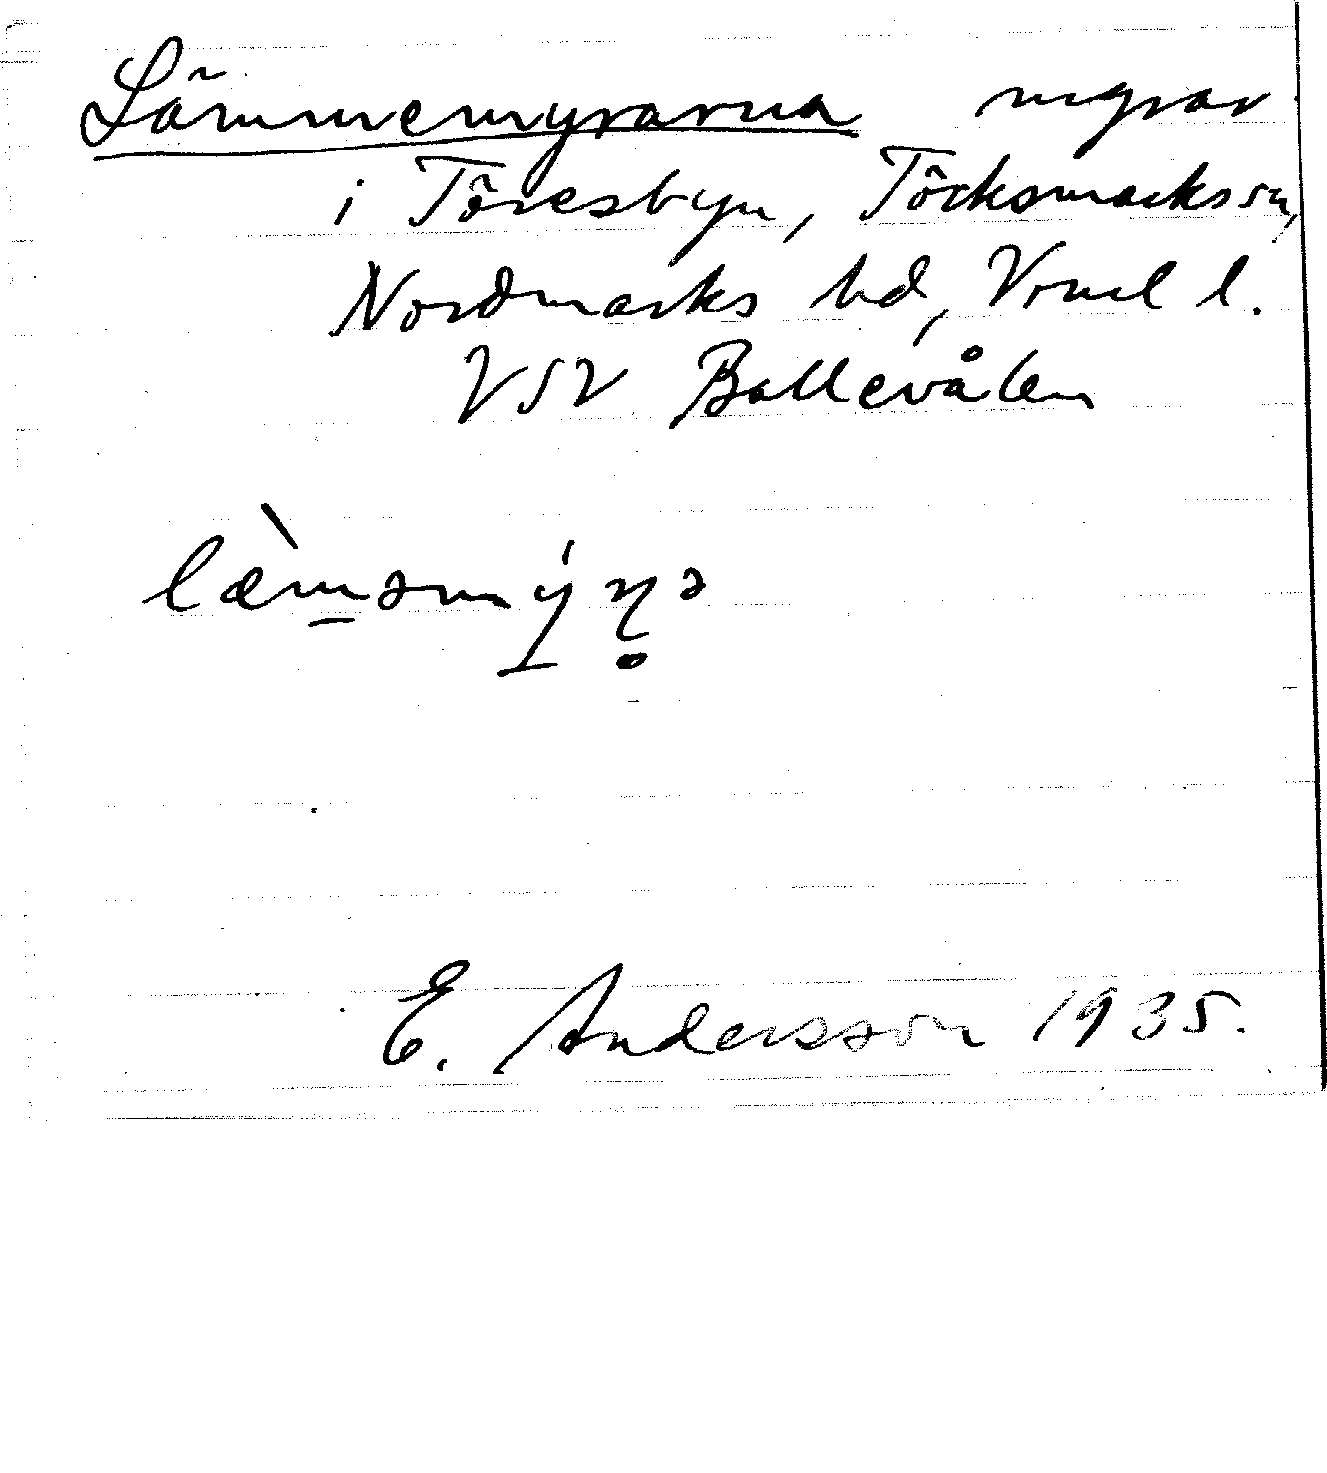 Lämmemyrarna myrar
i Töresbyn, Töcksmarks sn,
Nordmarks hd, Vrml l.
VSV Bollevålen
læ̀məmýṇə
E. Andersson 1935.